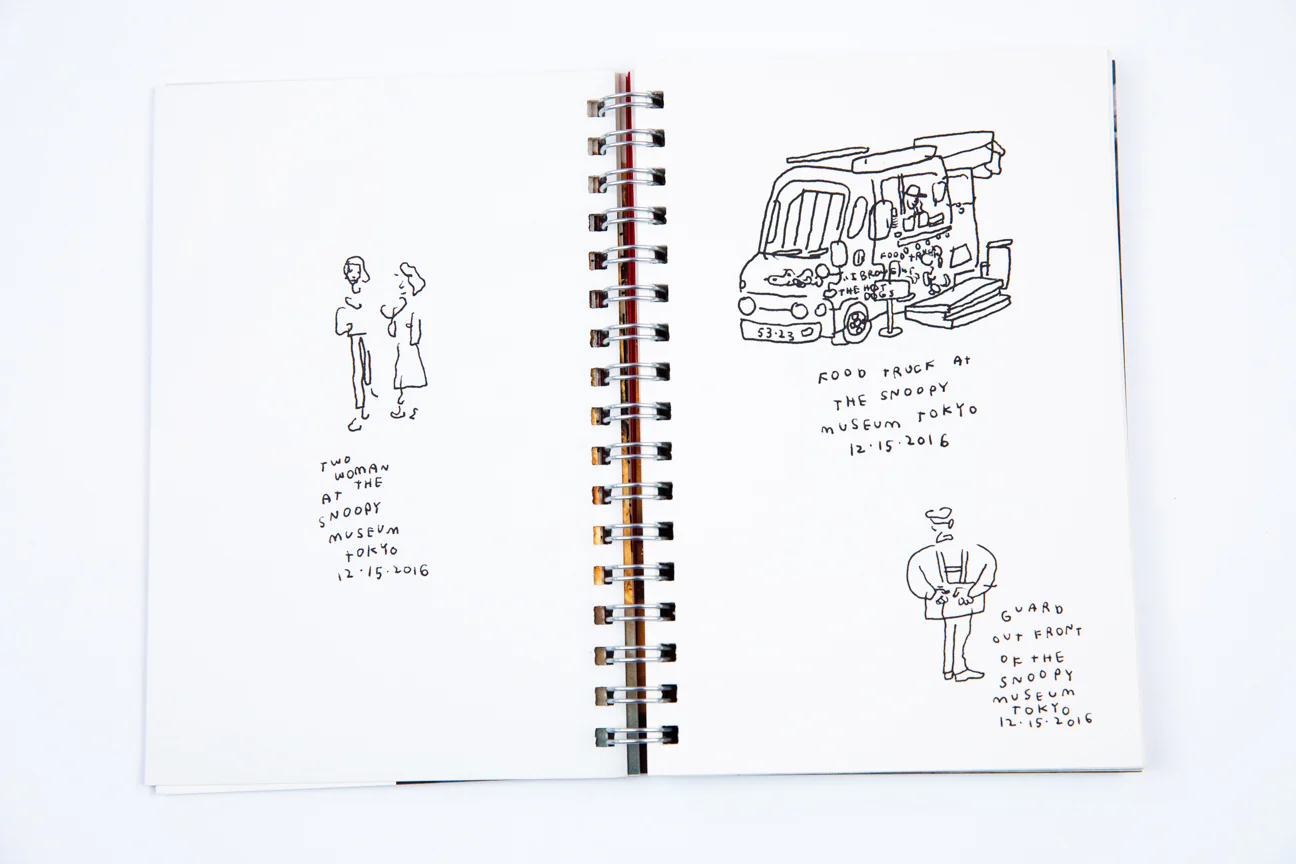 TWO
WOMAN
AT THE
SNOOPY
MUSEUM
TOKYO
12·15·2016
FOOD TRUCK
THE HOT
DOGS
53·23
FOOD TRUCK AT
THE SNOOPY
MUSEUM TOKYO
12·15·2016
GUARD
OUT FRONT
OF THE
SNOOPY
MUSEUM
TOKYO
12·15·2016